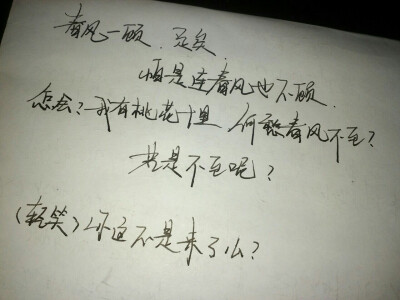 春风一顾,足矣
怕是连春风也不顾.
怎会?我有桃花十里,何愁春风不至?
若是不至呢?
(轻笑)你这不是来了么?